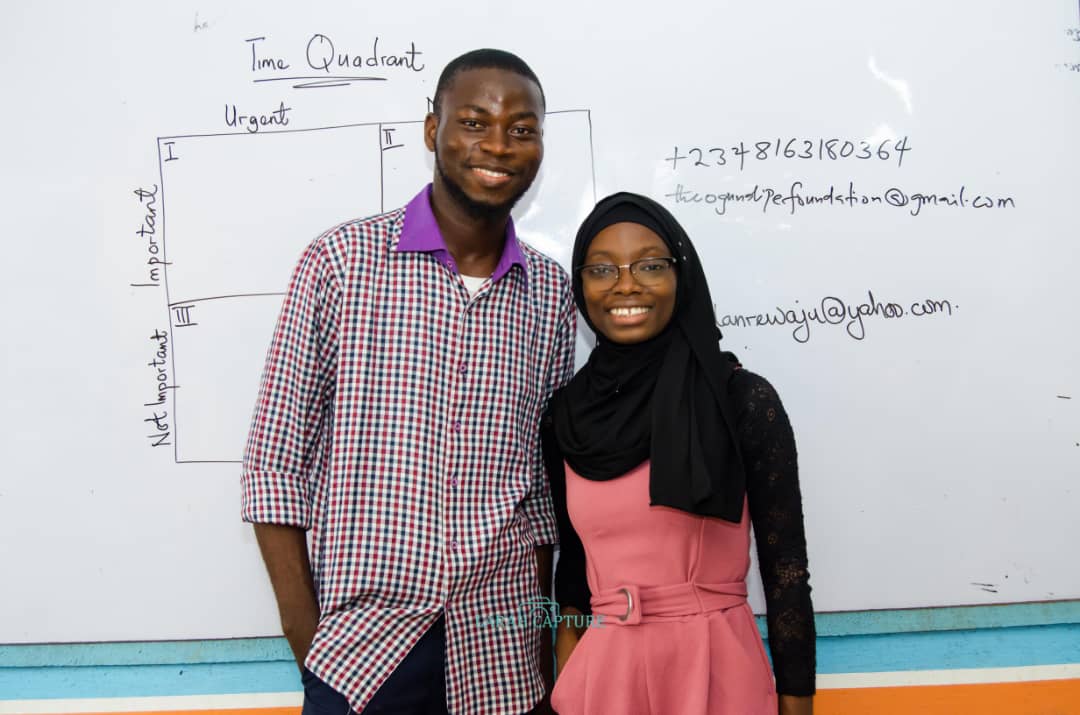 Time Quadrant
Urgent
I
II
Important
III
Not Important
+2348163180364
theogundiperfoundation@gmail.com
lanrewaju@yahoo.com.
SARAH CAPTURE